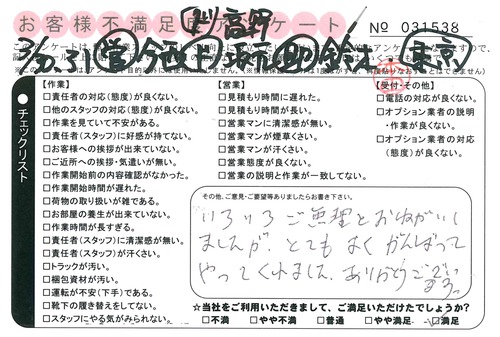 お客様不満足度アンケート
No 031538
チェックリスト
【作業】
□責任者の対応(態度)が良くない。
□他のスタッフの対応(態度)が良くない。
□作業を見ていて不安がある。
□責任者(スタッフ)に好感が持てない。
□お客様への挨拶が出来ていない。
□ご近所への挨拶・気遣いが無い。
□作業開始前の内容確認がなかった。
□作業開始時間が遅れた。
□荷物の取り扱いが雑である。
□お部屋の養生が出来ていない。
□作業時間が長すぎる。
□責任者(スタッフ)に清潔感が無い。
□責任者(スタッフ)が汗くさい。
□トラックが汚い。
□梱包資材が汚い。
□運転が不安(下手)である。
□靴下の履き替えをしてない。
□スタッフにやる気がみられない。
【営業】
□見積もり時間に遅れた。
□見積もり時間が長い。
□営業マンに清潔感が無い。
□営業マンが煙草くさい。
□営業マンが汗くさい。
□営業態度が良くない。
□営業の説明と作業が一致してない。
【受付・その他】
□電話の対応が良くない。
□オプション業者の説明
・作業が良くない。
□オプション業者の対応
(態度)が良くない。
その他、ご意見・ご要望等ありましたらお書き下さい。
いろいろご無理とおねがいし
ましたが、とてもよくがんばって
やってくれました。ありがとうござい
ます。
☆当社をご利用いただきまして、ご満足いただけたでしょうか?
□不満 □やや不満 □普通 □やや満足 □満足